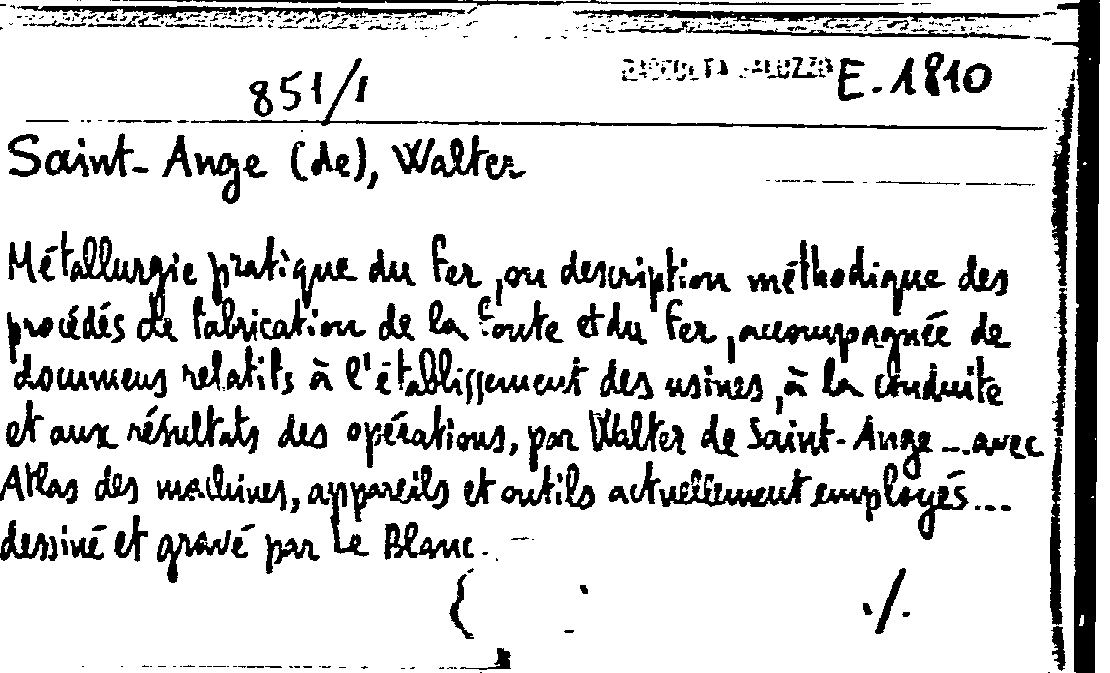 851/1 RACCOLTA SALUZZO E. 1810
Saint-Ange (de), Walter
Métallurgie pratique du Fer, ou description méthodique des
procédés de fabrication de la fonte et du Fer, accompagnée de
documens relatifs à l'établissement des usines, à la conduite
et aux résultats des opérations, par Walter de Saint-Ange... avec
Atlas des machines, appareils et outils actuellement employés...
dessiné et gravé par Le Blanc.
./.